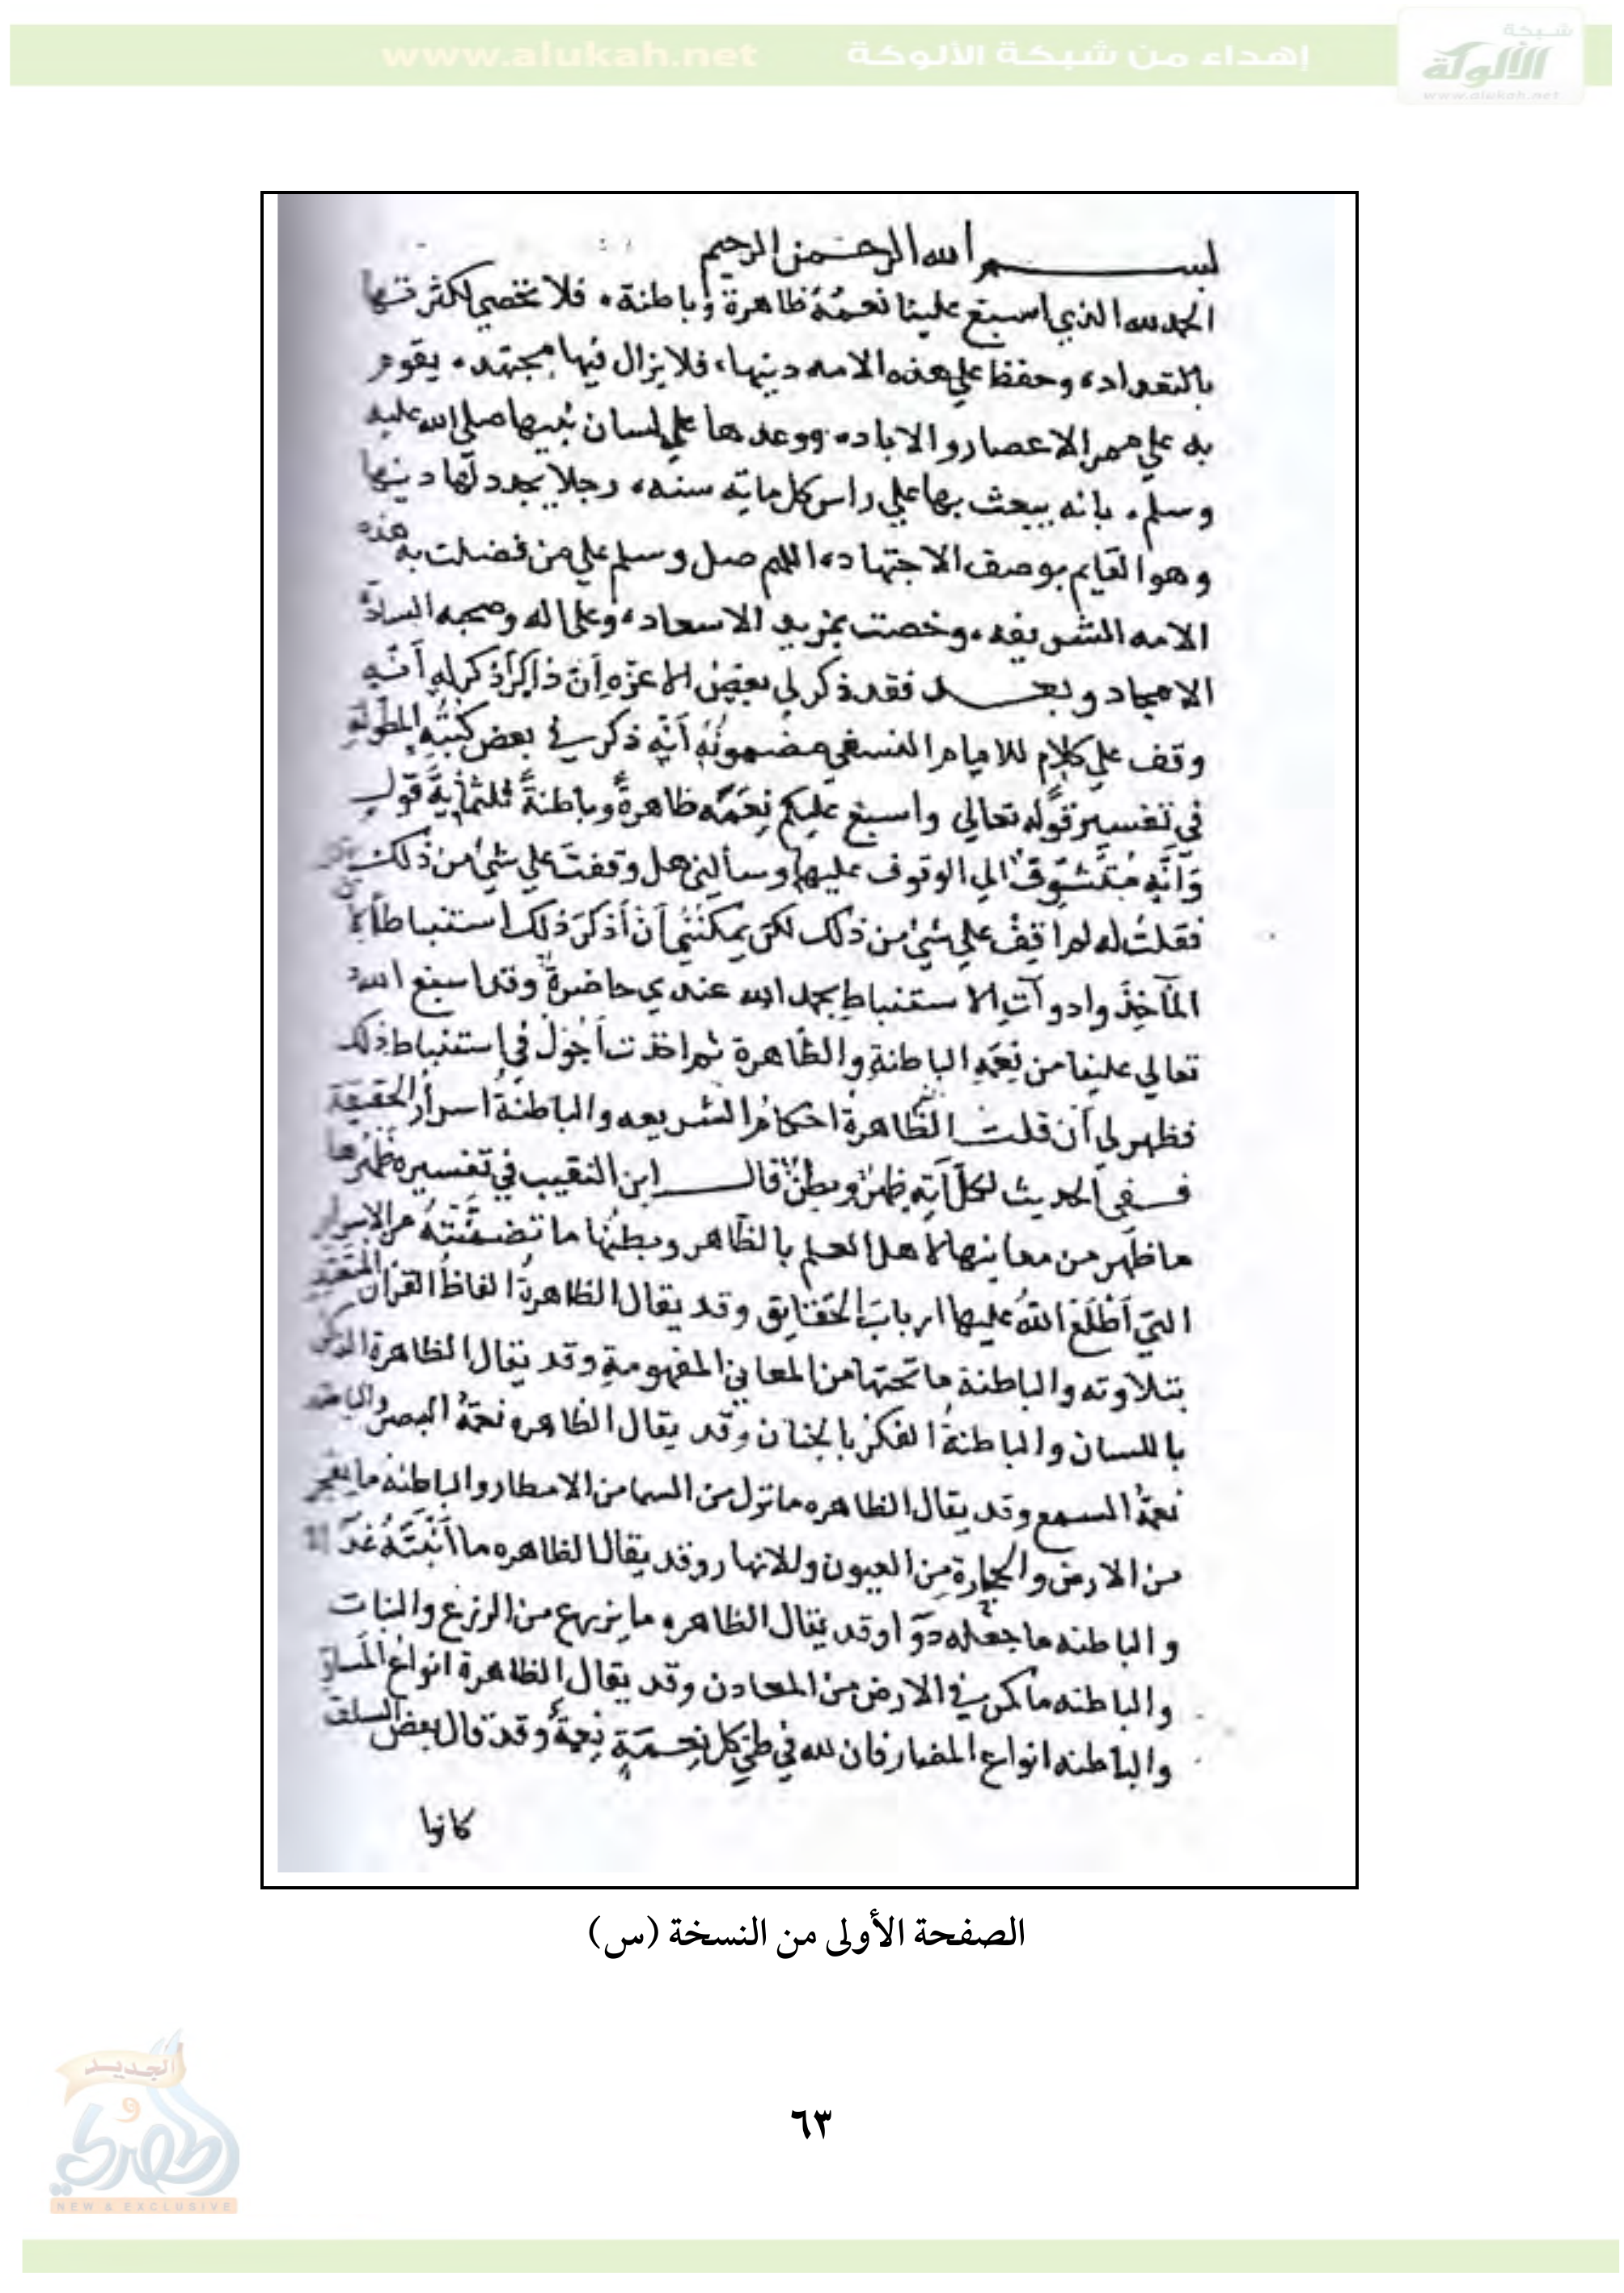 شبكة
الألوكة
www.alukah.net
إهداء من شبكة الألوكة
www.alukah.net
بسم الله الرحمن الرحيم
الحمد لله الذي اسبغ علينا نعمهُ ظاهرة وباطنة، فلا تحصي لكثرتها
بالتعداد، وحفظ علي هذه الامه دينها، فلا يزال فيها مجتهد، يقوم
به علي ممر الاعصار والاباد، ووعدها علي لسان نبيها صلي الله عليه
وسلم، بانه يبعث بها علي راس كل مايه سنه، رجلا يجدد لها دينها
وهو القايم بوصف الاجتهاد، اللهم صل وسلم علي من فضلت به هذه
الامه الشريفه، وخصت بمزيد الاسعاد، وعلى اله وصحبه السادة
الامجاد وبعد فقد ذكر لي بعضُ الاعزّه أنّ ذاكرًا ذكر له أنّه
وقف علي كلام للامام النسفي مضمونُهُ أنّه ذكر في بعض كتبِه المطوله
في تفسير قوله تعالي واسبغ عليكم نِعَمَه ظاهرةً وباطنةً ثلثمايةَ قول
وَأنّه مُتشوّقٌ الي الوقوف عليها وسألني هل وقفتَ علي شيْ من ذلك
فقلتُ له لم اقِفْ علي شيْ من ذلك لكن يمكنني أنْ أذكرَ ذلك استنباطاً
المآخِذَ وادوآتِ الاستنباطِ بحمد الله عندي حاضرةٌ وقد اسبغ الله
تعالي علينا من نِعَمِه الباطنةِ والظّاهرة ثم اخذت أجُولُ في استنباط ذلك
فظهر لي أن قلت الظّاهرةُ احكامُ الشريعه والباطنةُ اسرارُ الحقيقة
ففي الحديث لكلّ آيةٍ ظهرٌ وبطنٌ قال ابن النقيب في تفسيره ظهرها
ما ظهر من معانيها لاهل العلم بالظّاهر وبطنُها ما تضمّنَتْهُ من الاسرار
التي أطْلَعَ اللهُ عليها اربابَ الحقايق وقد يقال الظاهرةُ الفاظُ القرآن المتعبد
بتلاوته والباطنة ما تحتها من المعاني المفهومة وقد يقال الظاهرة الذكر
باللسان والباطنةُ الفكرُ بالجنان وقد يقال الظاهره نعمةُ البصر والباطنه
نعمةُ السمع وقد يقال الظاهره ما نزل من السما من الامطار والباطنه ما يفجر
من الارض والحجارة مِن العيون وللانهار وقد يقال الظاهره ما أنْبَتَهُ غذآ
والباطنه ما جعله دوآ وقد يقال الظاهره ما يزرع من الزرع والنبات
والباطنه ما كمن في الارض من المعادن وقد يقال الظاهرة انواعُ المسار
والباطنه انواع المضار فان لله في طيّ كل نِعمةٍ نِعمةٌ وقد قال بعض السلف
كانوا
الصفحة الأولى من النسخة (س)
٦٣
الجديد
و
الحصري
NEW & EXCLUSIVE